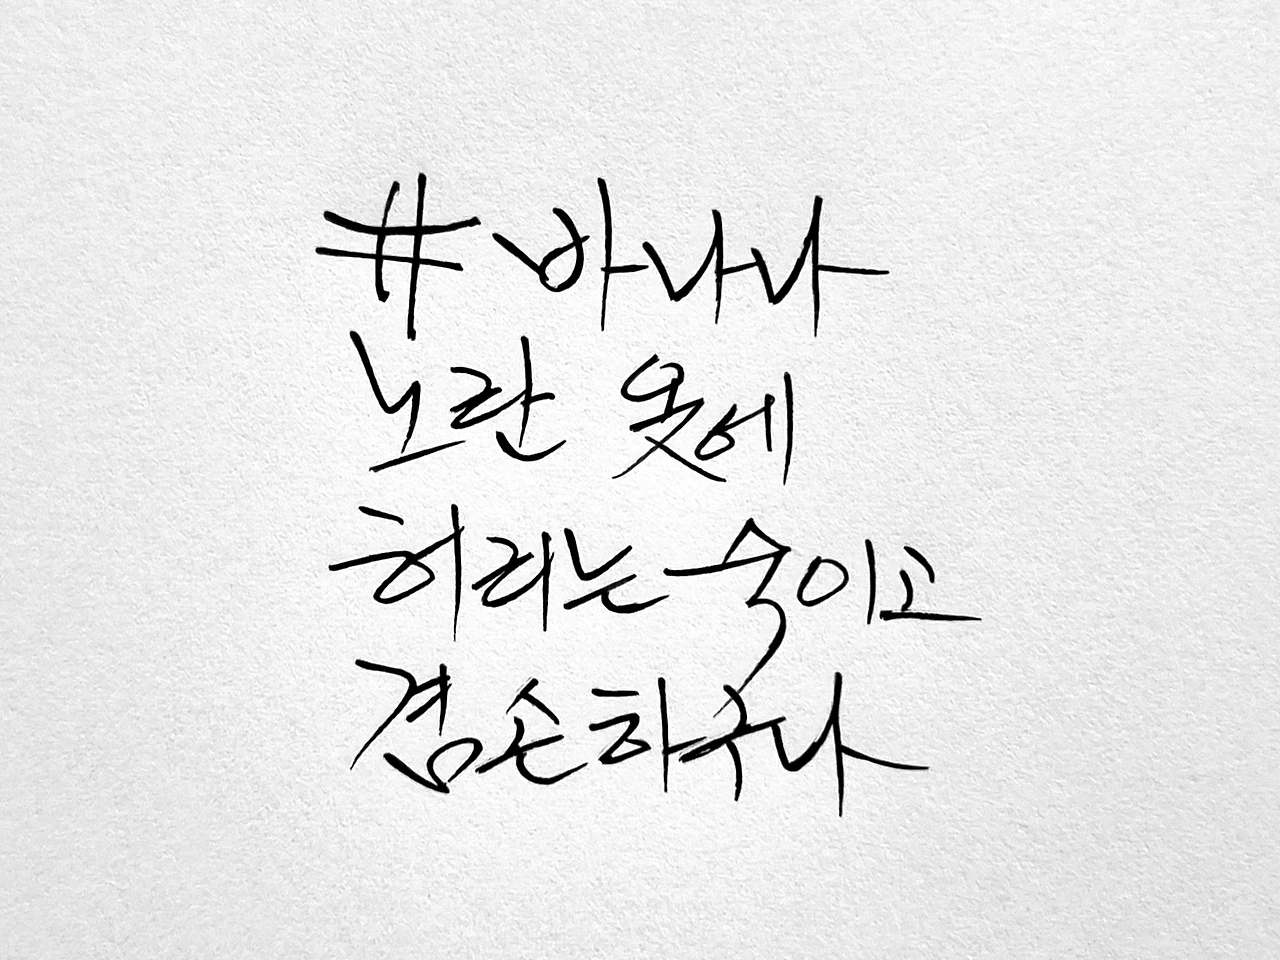 # 바나나
노란 옷에
허리는 숙이고
겸손하구나